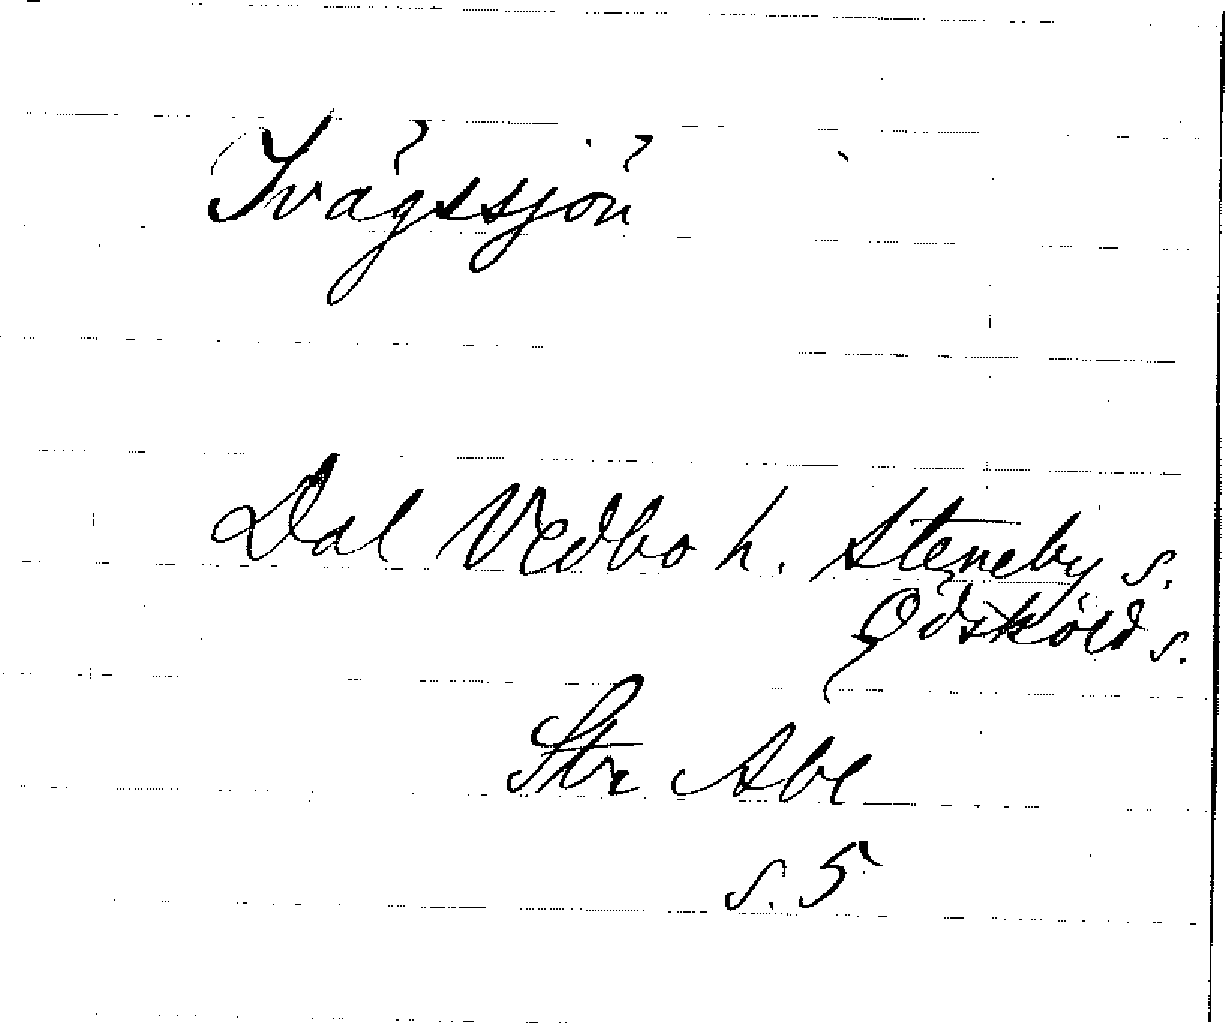 Ivägssjön
Dal Vedbo h. Steneby s.
Ödskölds s.
Stn Abe
s. 5